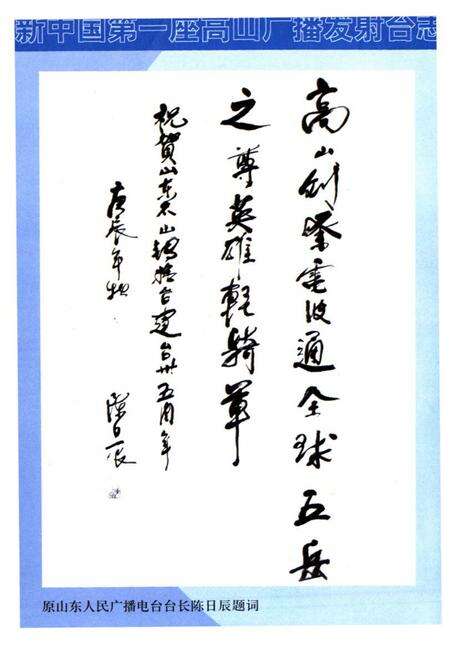 新中国第一座高山广播发射台志
高山创業電波通全球五岳
之尊英雄軽騎軍
祝賀山东泰山转播台建台卅五周年
庚辰年
陈日辰
原山东人民广播电台台长陈日辰题词